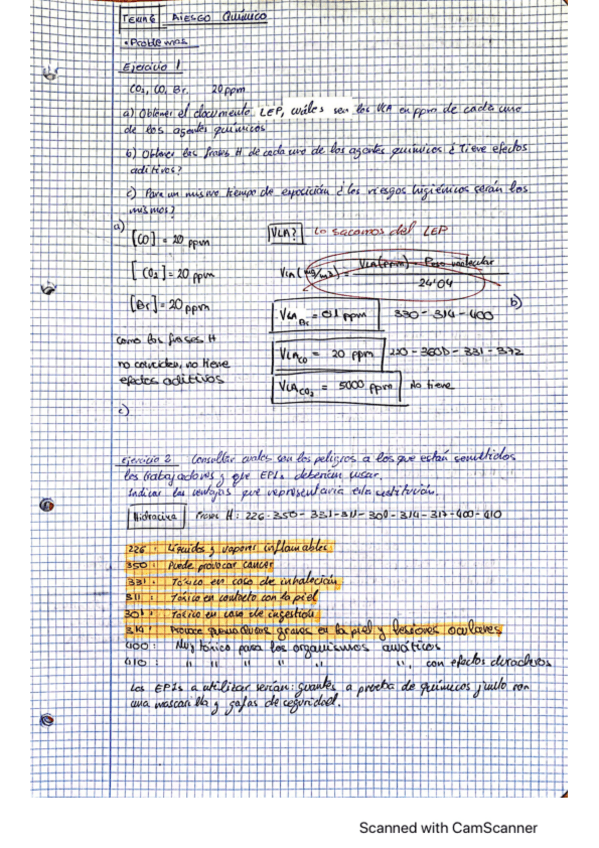 TEMA 6 RIESGO QUÍMICO
• Problemas
Ejercicio 1
CO2, CO, Br. 20 ppm
a) Obtener el documento LEP, cuáles son los VLA en ppm de cada uno
de los agentes químicos
b) Obtener las frases H de cada uno de los agentes químicos ¿Tiene efectos
aditivos?
c) Para un mismo tiempo de exposición ¿los riesgos higiénicos serán los
mismos?
a) [CO] = 20 ppm
VLA? Lo sacamos del LEP
VLA (mg/m3) = VLA (ppm) · Peso molecular
24'04
[CO2] = 20 ppm
[Br] = 20 ppm
b)
VLA Br = 0'1 ppm 330 - 314 - 400
como las frases H
no coinciden, no tiene
efectos aditivos
VLA CO = 20 ppm 220 - 360D - 331 - 372
VLA CO2 = 5000 ppm No tiene
c)
Ejercicio 2 Consultar cuales son los peligros a los que están sometidos
los trabajadores y que EPIs deberían usar.
Indicar las ventajas que representaría esta sustitución.
Hidracina Frases H: 226-350-331-311-301-314-317-400-410
226: Líquidos y vapores inflamables
350: Puede provocar cancer
331: Tóxico en caso de inhalación
311: Tóxico en contacto con la piel
301: Tóxico en caso de ingestión
314: Provoca quemaduras graves en la piel y lesiones oculares
400: Muy tóxico para los organismos acuáticos
410: " " " " " ", con efectos duraderos
Los EPIs a utilizar serían: guantes a prueba de químicos junto con
una mascarilla y gafas de seguridad.
Scanned with CamScanner